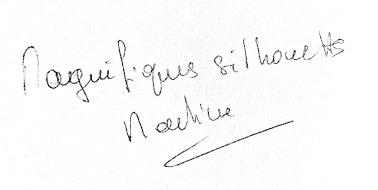 Magnifiques silhouettes
Martine